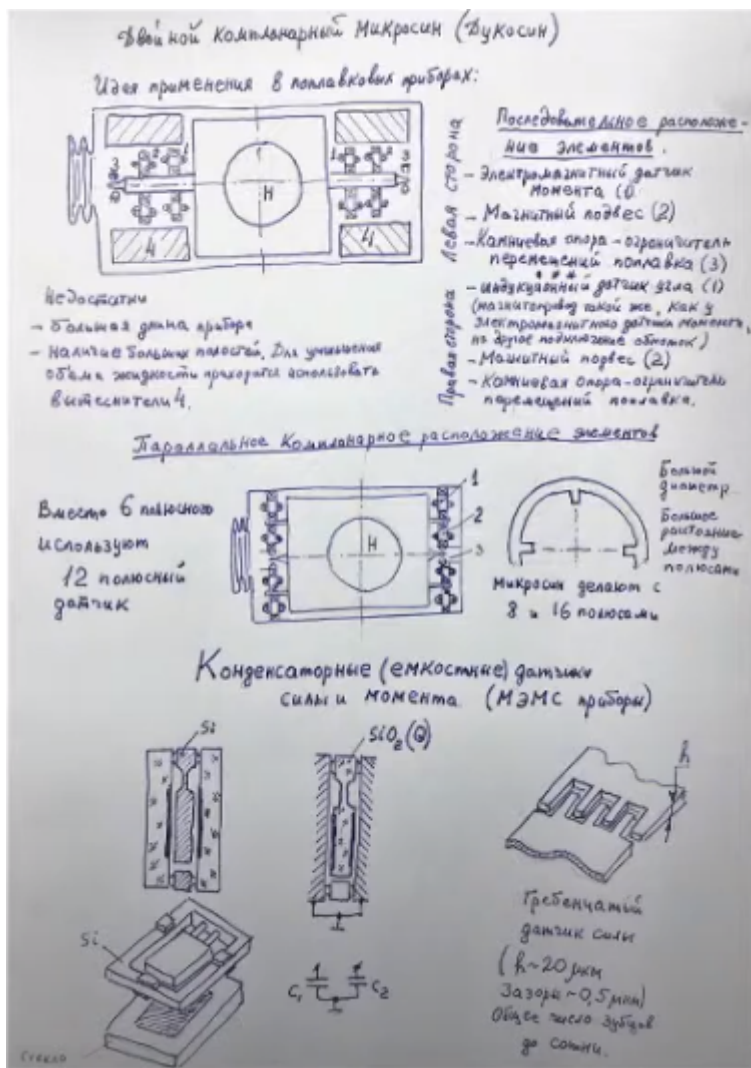 Двойной Компланарный Микросин (Дукосин)
Идея применения в поплавковых приборах:
Последовательное расположе-
ние элементов.
Левая сторона
- Электромагнитный датчик
момента (1)
- Магнитный подвес (2)
- Камниевая опора-ограничитель
перемещений поплавка (3)
Правая сторона
- индукционный датчик угла (1)
(магнитопровод такой же, как у
электромагнитного датчика момента,
но другое подключение обмоток)
- Магнитный подвес (2)
- Камниевая опора-ограничитель
перемещений поплавка.
3 2 1
H
1 2 3
4 4
Недостатки
- Большая длина прибора
- Наличие больших полостей. Для уменьшения
объема жидкости приходится использовать
вытеснители 4.
Параллальное Компланарное расположение элементов
Вместо 6 полюсного
используют
12 полюсный
датчик
H
1
2
3
Большой
диаметр
Большое
расстояние
между
полюсами
микросин делают с
8 и 16 полюсами
Конденсаторные (емкостные) датчики
силы и момента (МЭМС приборы)
Si
SiO2(Q)
h
Si
Стекло
C1 C2
Гребенчатый
датчик силы
(h~20 мкм
Зазоры ~0,5 мкм)
Общее число зубцов
до сотни.